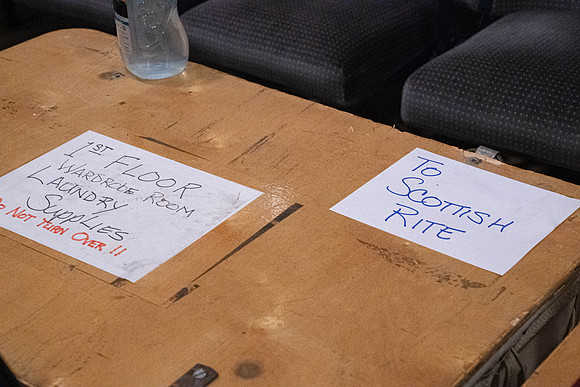 1ST FLOOR
WARDROBE ROOM
LAUNDRY
SUPPLIES
DO NOT TURN OVER !!
TO
SCOTTISH
RITE